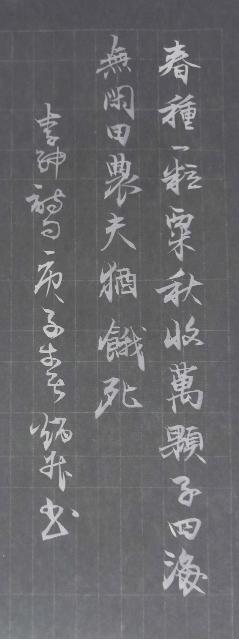 春種一粒粟秋收萬顆子四海
無閑田農夫猶餓死
李紳詩句庚子春炳南书